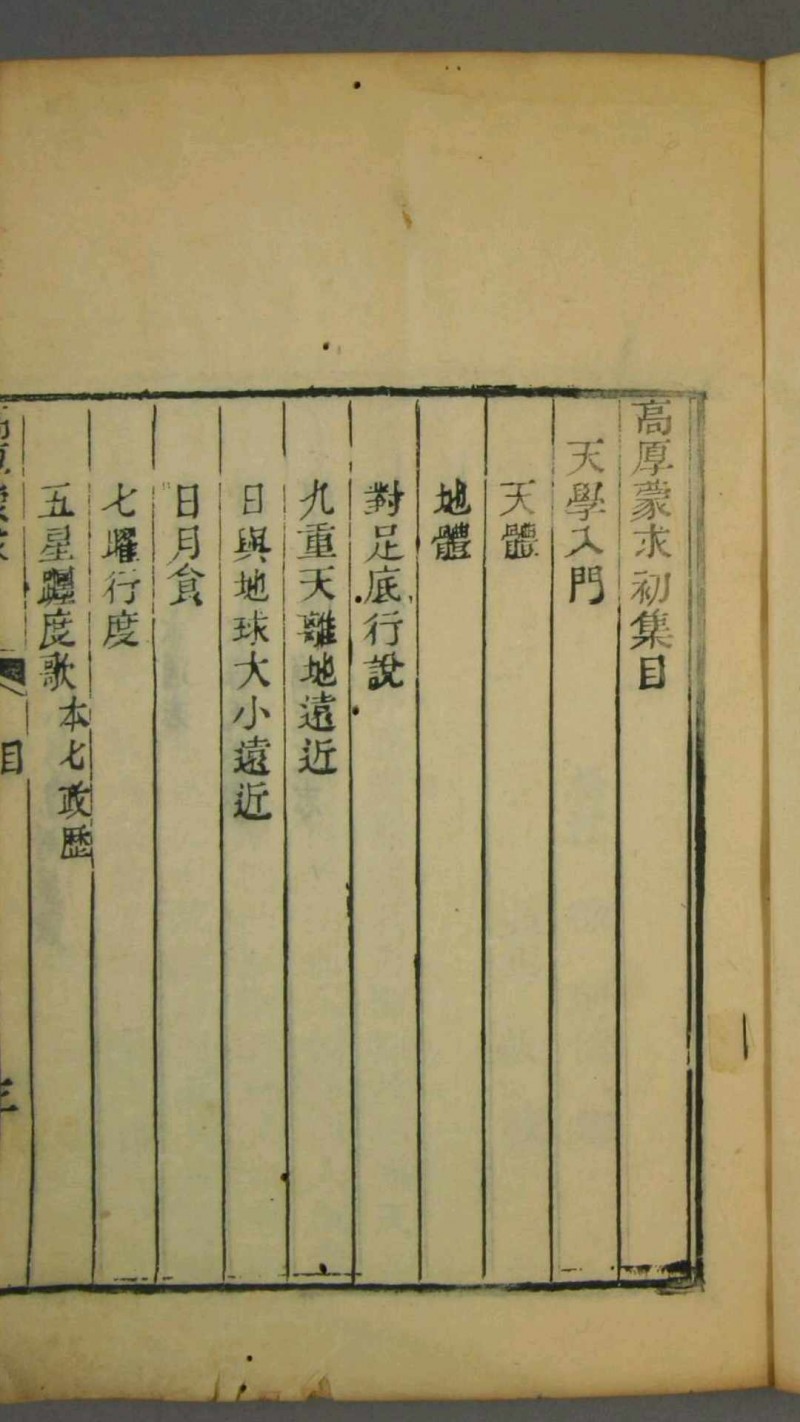 高厚蒙求初集目
天學入門
天體
地體
對足底行說
九重天離地遠近
日與地球大小遠近
日月食
七曜行度
五星躔度歌本七政歷
目